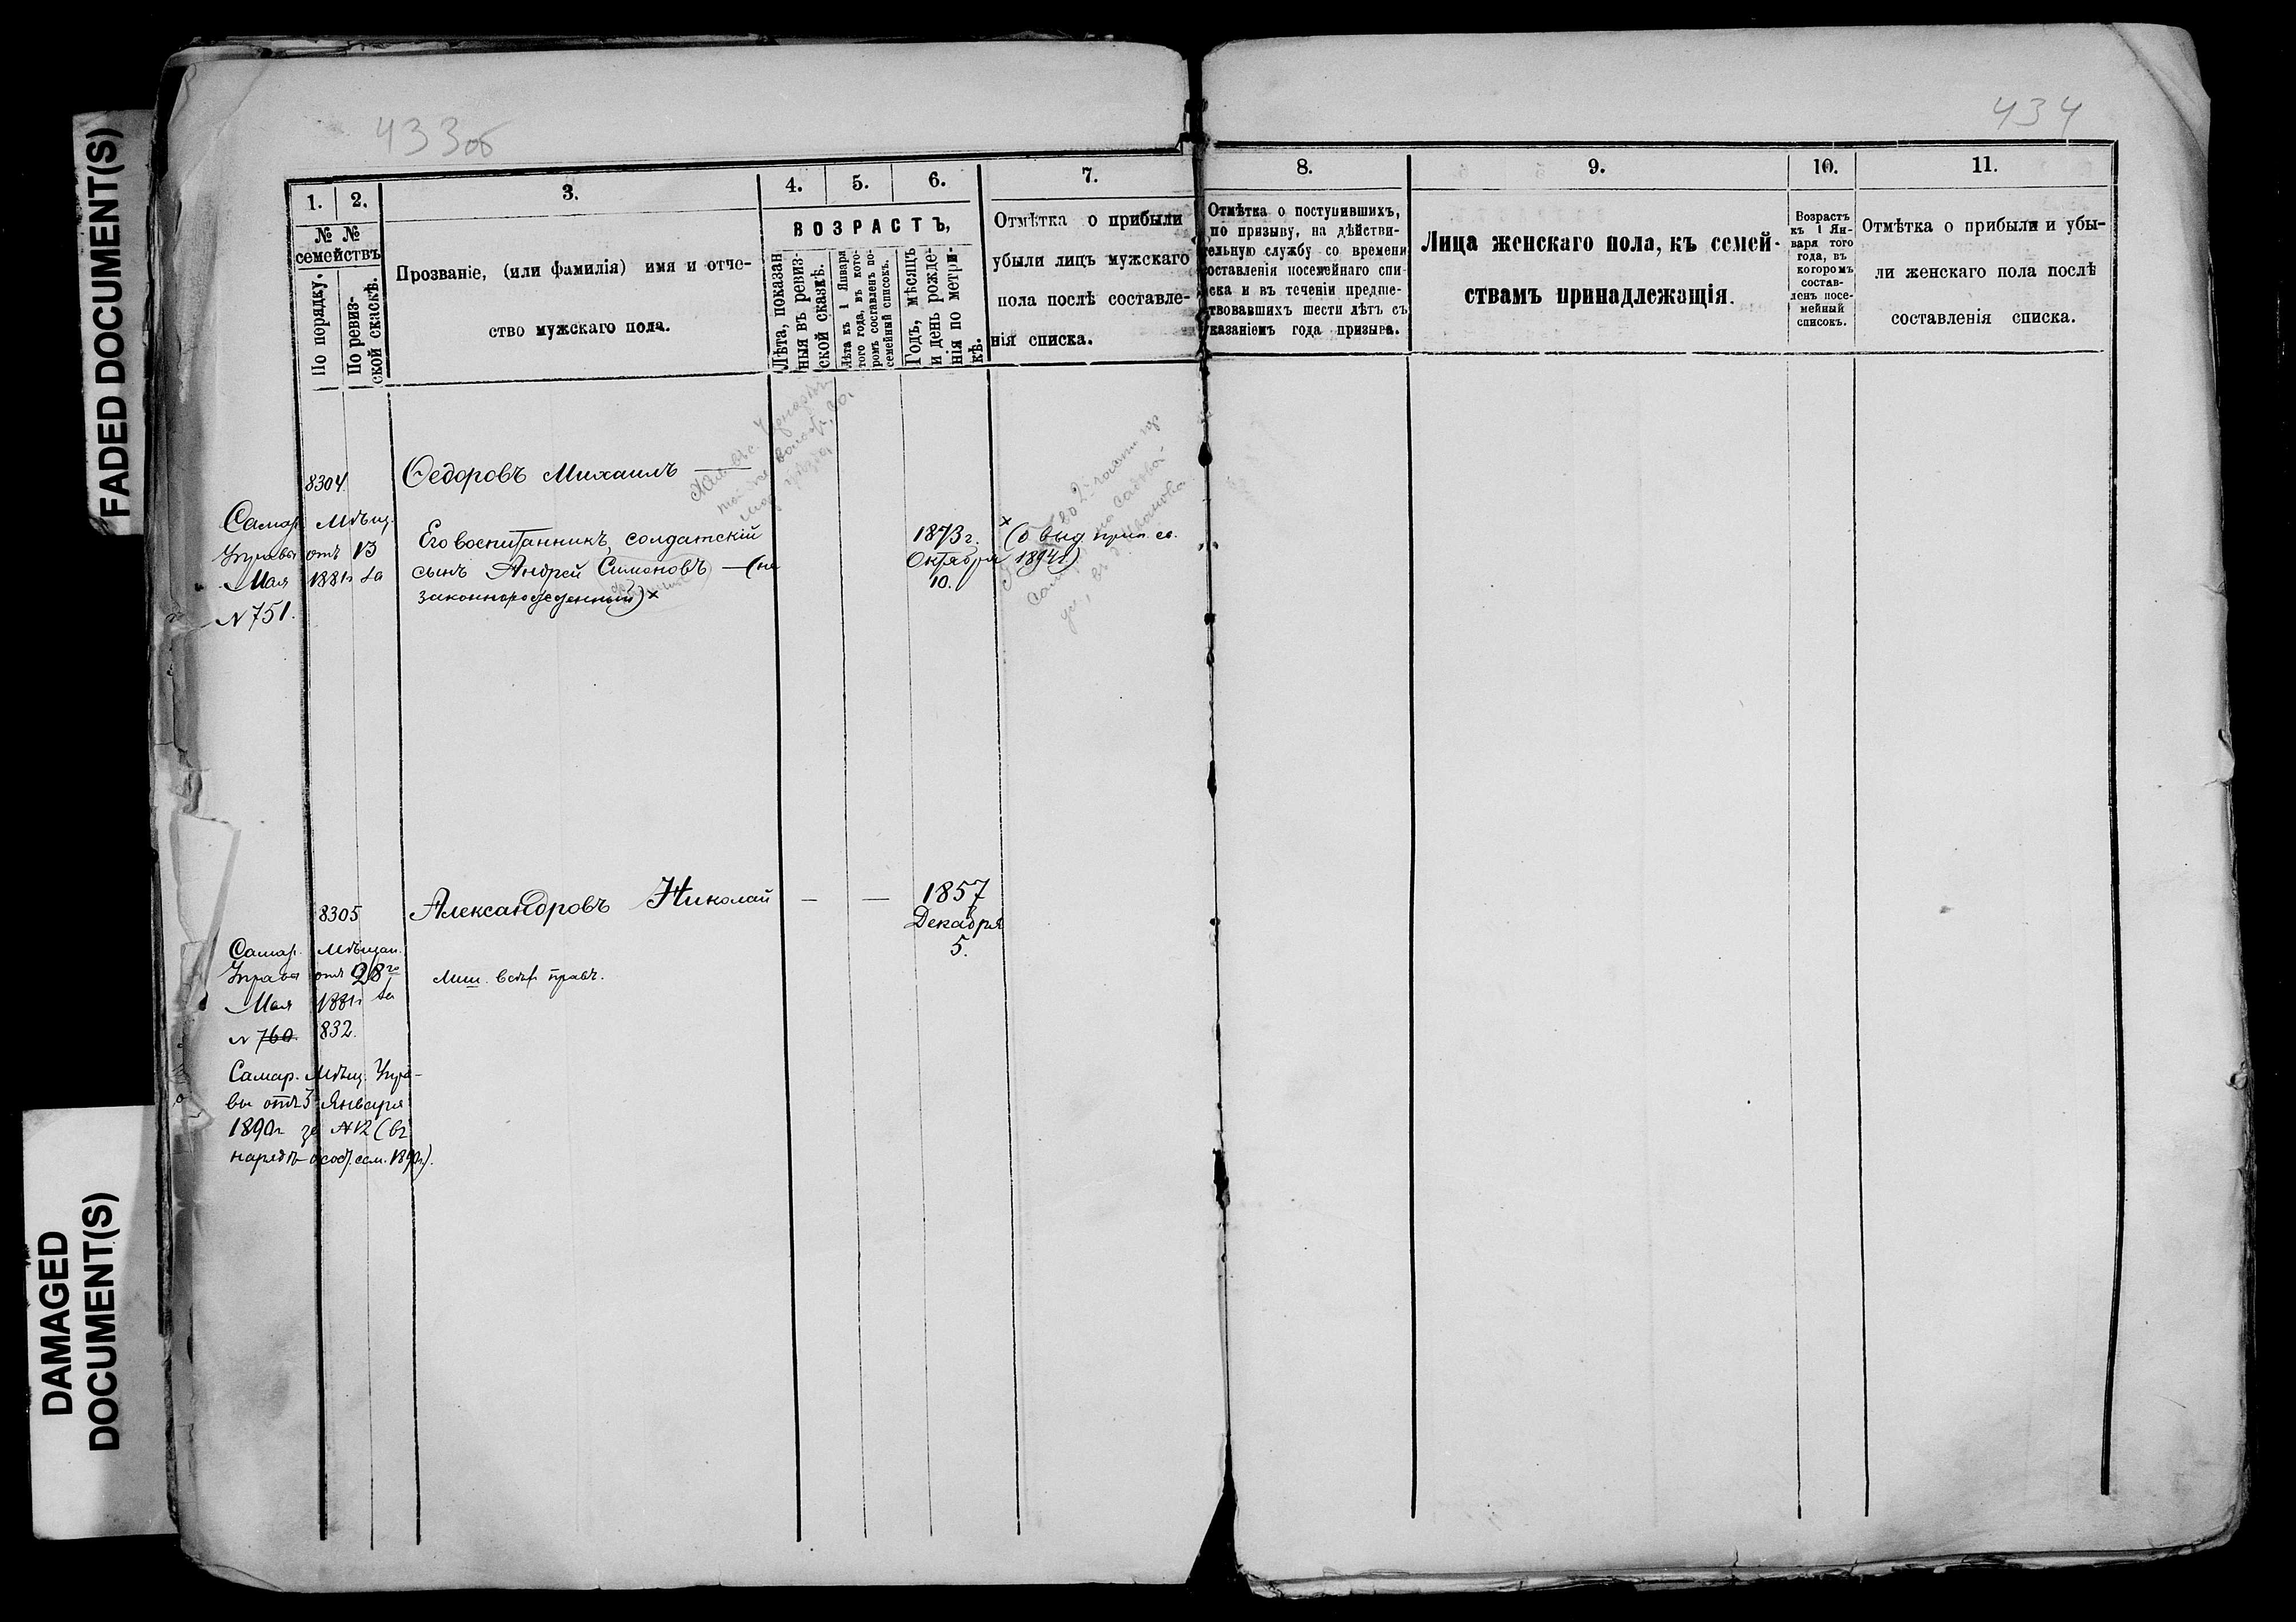 FADED DOCUMENT(S)
DAMAGED
DOCUMENT(S)
433об
434
1.
2.
3.
4.
5.
6.
7.
8.
9.
10.
11.
№ №
семействъ
По порядку.
По ревиз-
ской скаскѣ.
Прозваніе, (или фамилія) имя и отче-
ство мужскаго пола.
ВОЗРАСТЪ,
Лѣта, показан
ныя въ ревиз-
ской сказкѣ.
Лѣта къ 1 Января
того года, въ кото-
ромъ составленъ по-
семейный списокъ.
Годъ, мѣсяцъ
и день рожде-
нія по метри-
кѣ.
Отмѣтка о прибыли
убыли лицъ мужскаго
пола послѣ составле-
нія списка.
Отмѣтка о поступившихъ,
по призыву, на дѣйстви-
тельную службу со времени
составленія посемейнаго спи-
ска и въ теченіи предше-
ствовавшихъ шести лѣтъ съ
указаніемъ года призыва.
Лица женскаго пола, къ семей-
ствамъ принадлежащія.
Возрастъ
къ 1 Ян-
варя того
года, въ
которомъ
состав-
ленъ посе-
мейный
списокъ.
Отмѣтка о прибыли и убы-
ли женскаго пола послѣ
составленія списка.
8304.
Ѳедоровъ Михаилъ —
Самар. Мѣщ.
Управы отъ 13
Мая 1881г за
N 751.
Его воспитанникъ, солдатскій
сынъ Андрей Симоновъ — (не
законнорожденный) x
1873 г.
Октября
10.
x (о выд прип. св.
1894 г.)
во 2й части
на Садовой
8305
Александровъ Николай
—
—
1857
Декабря
5.
Самар. Мѣщан.
Управы отъ 28го
Мая 1881г за
N 760 832.
Лиш. всѣх правъ.
Самар. Мѣщ. Упра-
вы отъ 3 Января
1890г за N 12 (въ
нарядѣ о сост. сем. 1890г).